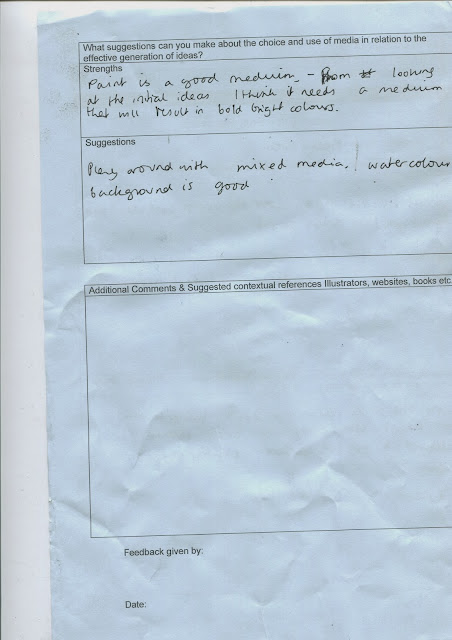 What suggestions can you make about the choice and use of media in relation to the
effective generation of ideas?
Strengths
Paint is a good medium - From looking
at the initial ideas I think it needs a medium
that will result in bold bright colours.
Suggestions
Play around with mixed media. watercolour
background is good
Additional Comments & Suggested contextual references Illustrators, websites, books etc
Feedback given by:
Date: